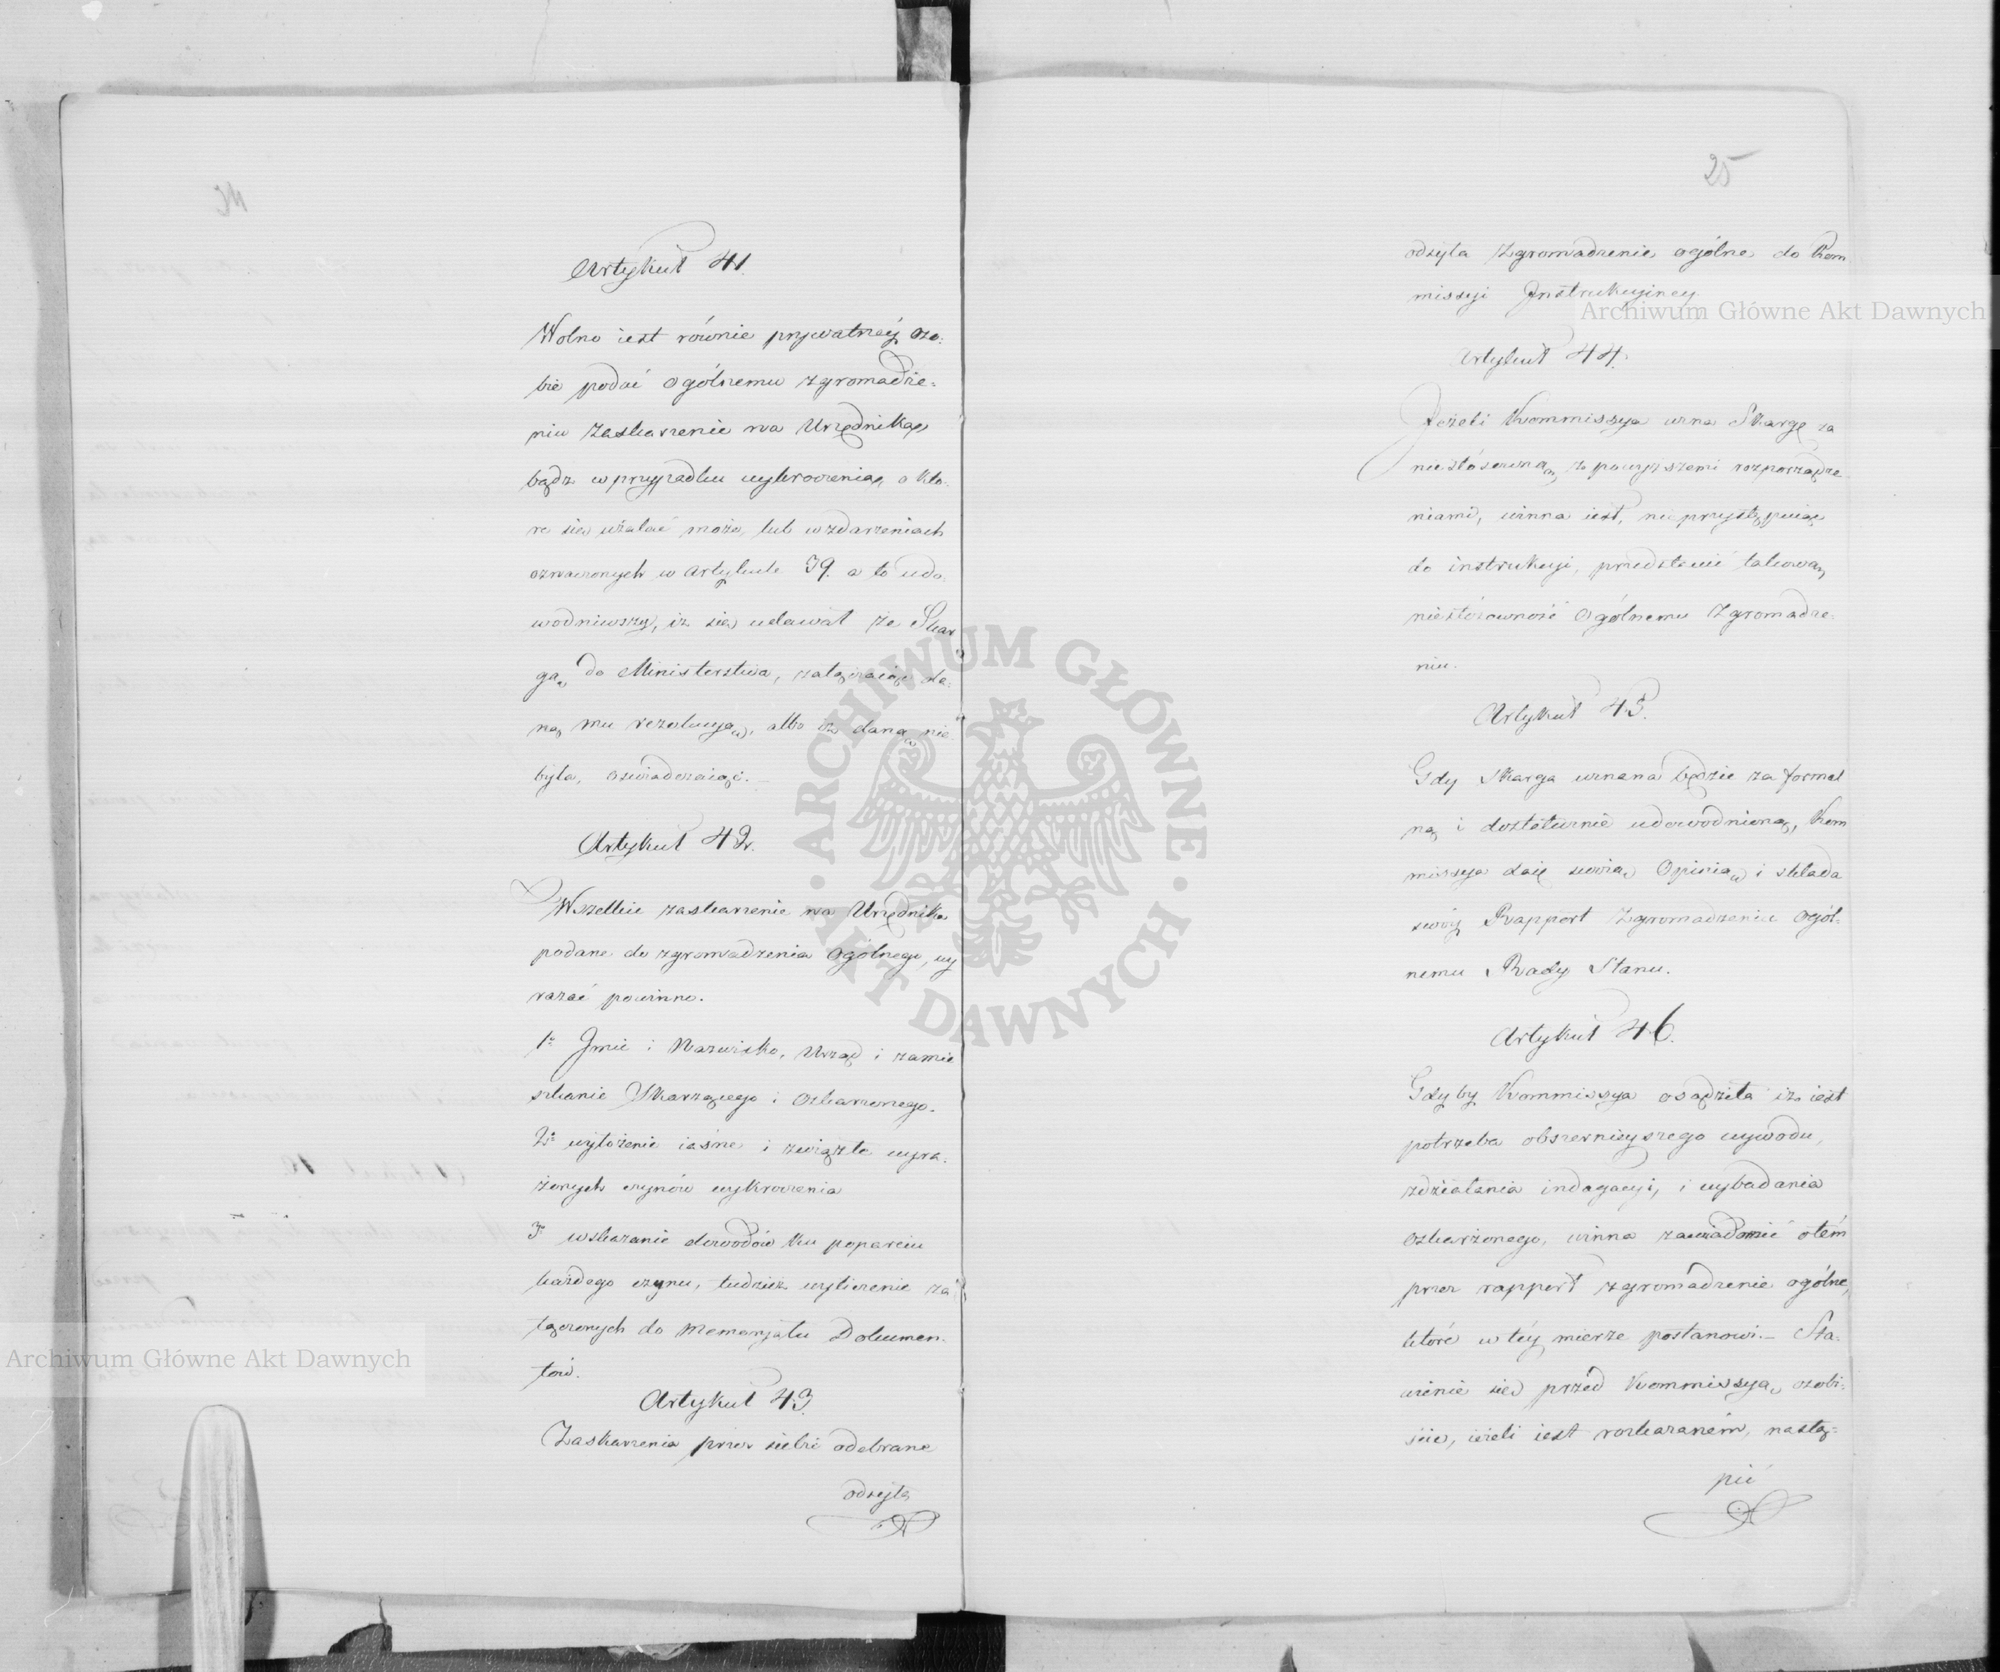 Artykuł 41.
Wolno iest równie prywatnéy oso-
bie podać ogólnemu zgromadze-
niu zaskarżenie na Urzędnika,
bądź w przypadku wykroczenia, o któ-
re się użalać może, lub w zdarzeniach
oznaczonych w artykule 39. a to udo-
wodniwszy, iż się udawał ze Skar
gą do Ministerstwa, załączaiąc da-
ną mu rezolucyą, albo iż daną nie
była, oświadczaiąc.
Artykuł 42.
Wszelkie zaskarżenie na Urzędnika
podane do zgromadzenia Ogólnego, wy
rażać powinno.
1º Jmie i Nazwisko, Urząd i zamie
szkanie Skarżącego i Oskarżonego.
2º wyłożenie iaśne i związłe wyra-
żonych czynów wykroczenia
3º wskazanie dowodów ku poparciu
każdego czynu, tudzież wyliczenie za
łączonych do Memoryału Dokumen-
tów.
Artykuł 43.
Zaskarżenia przez siebie odebrane
odsyła
25
odsyła Zgromadzenie ogólne do Kom
missyi Instrukcyiney
Artykuł 44.
Jeżeli Kommissya uzna Skargę za
niestósowną z powyższemi rozporządze-
niami, winna iest, nieprzystępuiąc
do instrukcyi, przedstawić takową
niestósowność Ogólnemu Zgromadze-
niu.
Artykuł 45.
Gdy Skarga uznana będzie za formal
ną i dostatecznie udowodnioną, Kom
missya daie swoią Opinią i składa
swóy Rapport Zgromadzeniu Ogól-
nemu Rady Stanu.
Artykuł 46.
Gdyby Kommissya osądziła iż iest
potrzeba obszernieyszego wywodu,
zdziałania indagacyi, i wybadania
oskarżonego, winna zawiadomić o tém
przez rapport zgromadzenie ogólne,
które w téy mierze postanowi. – Sta-
wienie się przed Kommissyą osobi-
ście, ieżeli iest rozkazaném, nastą-
pić
Archiwum Główne Akt Dawnych
Archiwum Główne Akt Dawnych
ARCHIWUM GŁÓWNE AKT DAWNYCH